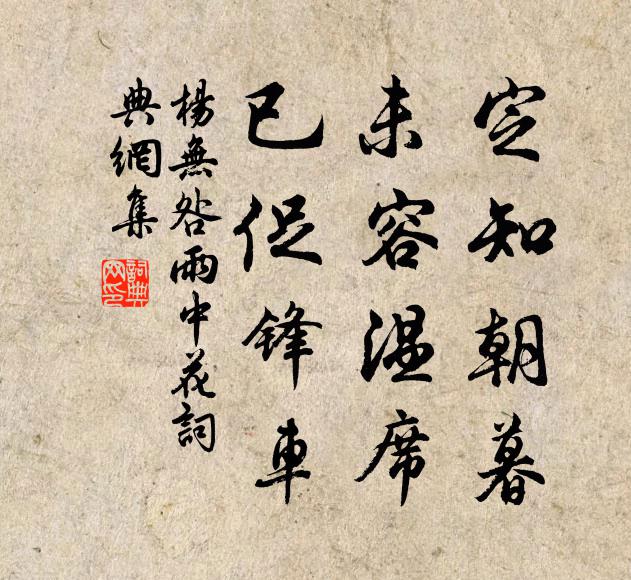 定知朝暮
未容温席
已促锋車
楊無咎雨中花詞
典網集
詞典網印